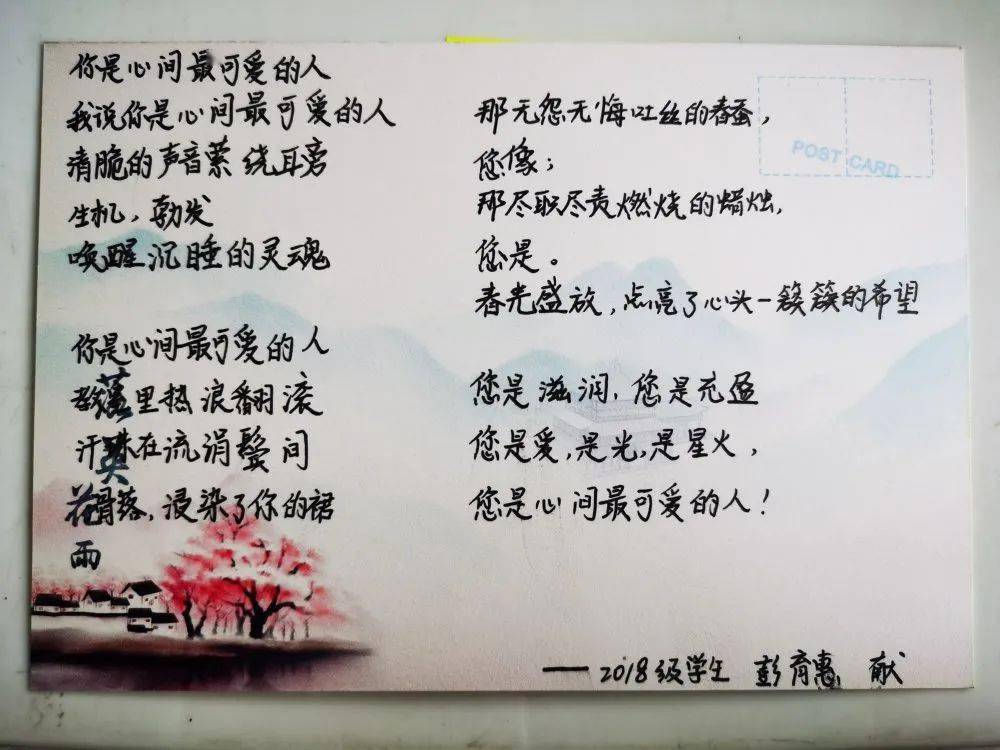 你是心间最可爱的人
我说你是心间最可爱的人
清脆的声音萦绕耳旁
生机,勃发
唤醒沉睡的灵魂
你是心间最可爱的人
教里热浪翻滚
汗珠在流涓鬓间
滑落,浸染了你的裙
落英花雨
POST CARD
那无怨无悔吐丝的春蚕,
您像;
那尽职尽责燃烧的蜡烛,
您是。
春光盛放,点亮了心头一簇簇的希望
您是滋润,您是充盈
您是爱,是光,是星火,
您是心间最可爱的人!
——2018级学生 彭育惠 献